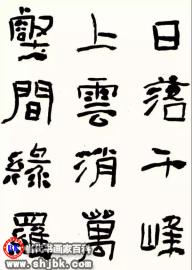 日落千峰
上雲消萬
壑間綠羅
书画家百科
www.shjbk.com